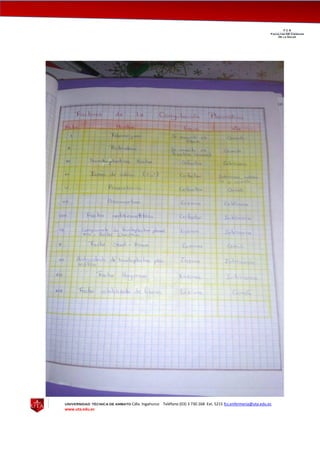 FCS
FACULTAD DE CIENCIAS
DE LA SALUD
Factores de la Coagulación Plasmática
Factor Nombre Vía
I Fibrinógeno Común
II Protrombina Común
III Tromboplastina tisular Cofactor Extrínseca
IV Iones de calcio Cofactor
V Proacelerina Cofactor Común
VII Proconvertina Enzima Extrínseca
VIII Factor antihemofílico Cofactor Intrínseca
Componente de tromboplastina plasmática Enzima Intrínseca
X Factor Stuart - Prower Enzima Común
XI Antecedente de tromboplastina plasmática Enzima Intrínseca
XII Factor Hageman Enzima Intrínseca
XIII Factor estabilizador de fibrina Común
UTA
UNIVERSIDAD TÉCNICA DE AMBATO Cdla. Ingahurco Teléfono (03) 3 730 268 Ext. 5215 fcs.enfermeria@uta.edu.ec
www.uta.edu.ec